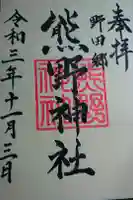 奉拝
野田郷
熊野神社
令和三年十一月三日